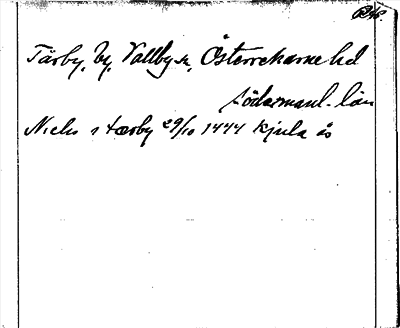 Tärby, by, Vallby sn, Österrekarne hd
Södermanl. län
Niclis i tærby 29/10 1444 Kjula ås